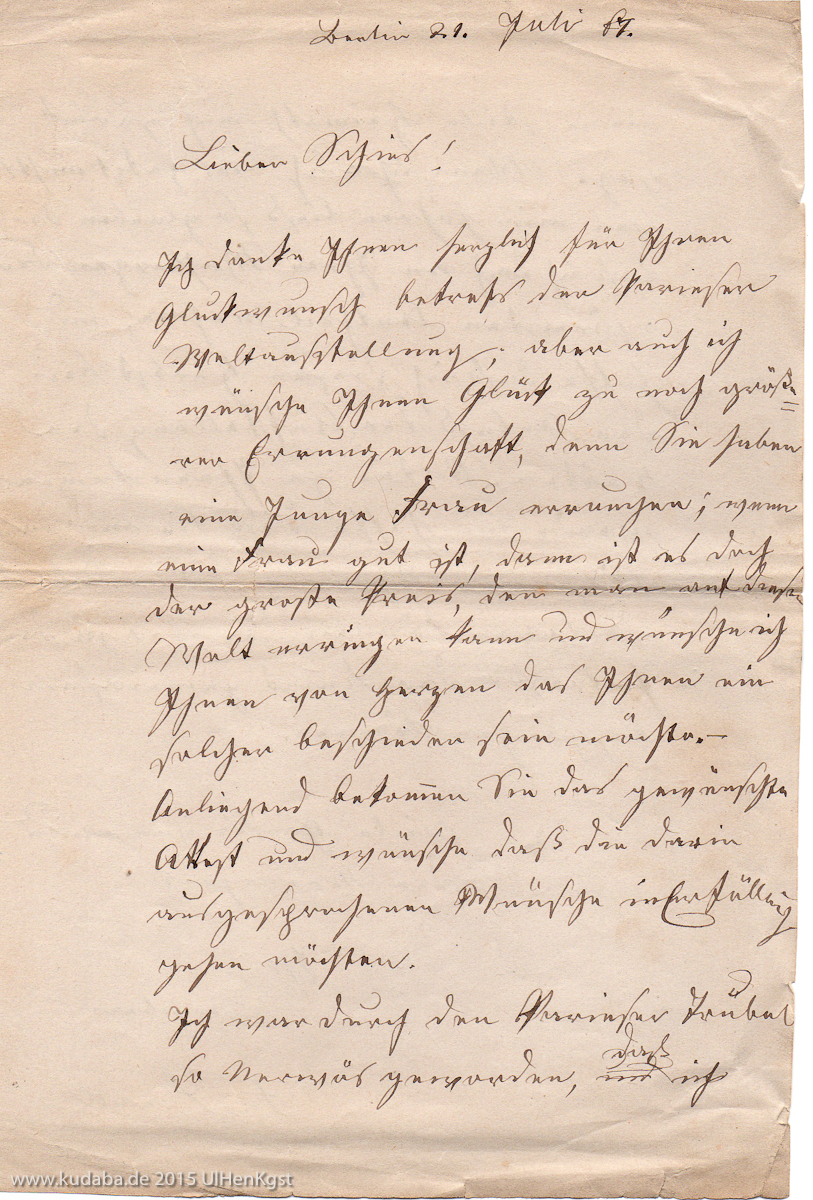 Berlin 21. Juli 67.
Lieber Schies!
Ich danke Ihnen herzlich für Ihren
Gluckwunsch betreffs der Parieser
Weltausstellung, aber auch ich
wünsche Ihnen Glück zu noch größe=
rer Errungenschaft, denn Sie haben
eine Junge Frau errungen; wenn
eine Frau gut ist, dann ist es doch
der große Preis, den man auf dieser
Welt erringen kann und wünsche ich
Ihnen von Herzen das Ihnen ein
solcher beschieden sein möchte.—
Anliegend bekommen Sie das gewünschte
Attest und wünsche daß die darin
ausgesprochenen Wünsche in Erfüllung
gehen möchten.
Ich war durch den Parieser Trubel
so Nerwös geworden, daß
und ich
www.kudaba.de 2015 UlHenKgst